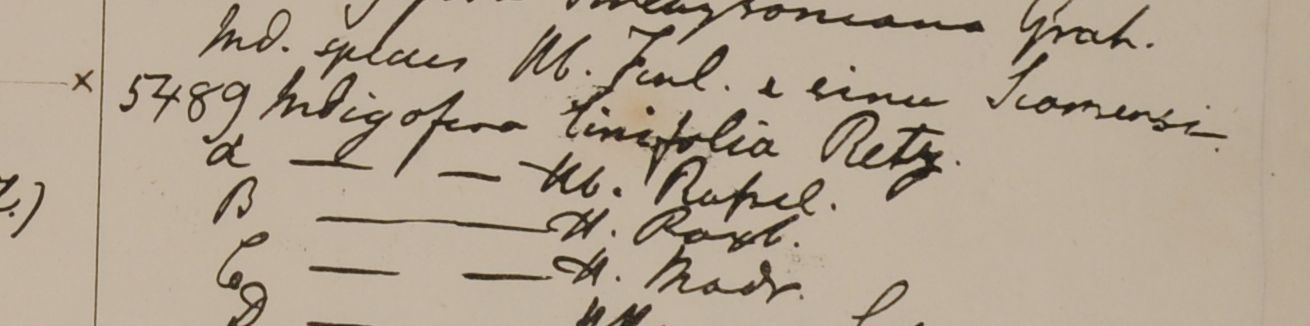 Grah.
Ind. species Hb. Finl. e sinu Siamensi
× 5489 Indigofera linifolia Retz.
α — — Hb. Russel.
B — H. Roxb.
C — — H. Madr.
D —